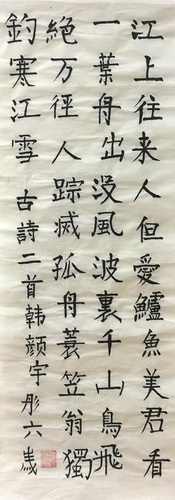 江上往来人但愛鱸魚美君看
一葉舟出没風波裏千山鳥飛
絕万徑人踪滅孤舟蓑笠翁獨
釣寒江雪 古詩二首韩颜宇彤六歲